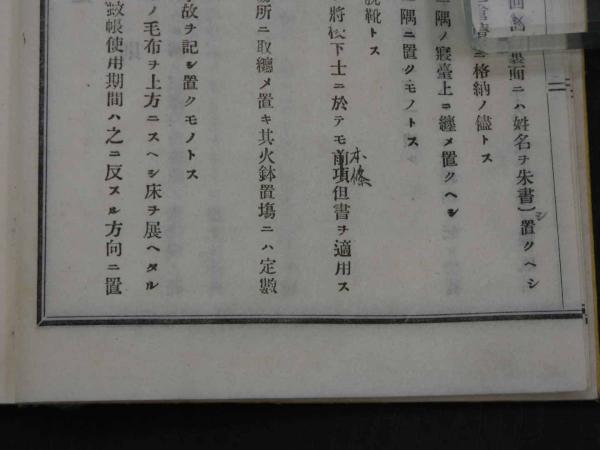 裏面ニハ姓名ヲ朱書シ置クヘシ
格納ノ儘トス
隅ノ寢臺上ニ纏メ置クヘシ
隅ニ置クモノトス
脱靴トス
將校下士ニ於テモ前項但書ヲ適用ス
本條
場所ニ取纏メ置キ其火鉢置場ニハ定數
故ヲ記シ置クモノトス
ノ毛布ヲ上方ニスヘシ床ヲ展ヘタル
蚊帳使用期間ハ之ニ反スル方向ニ置